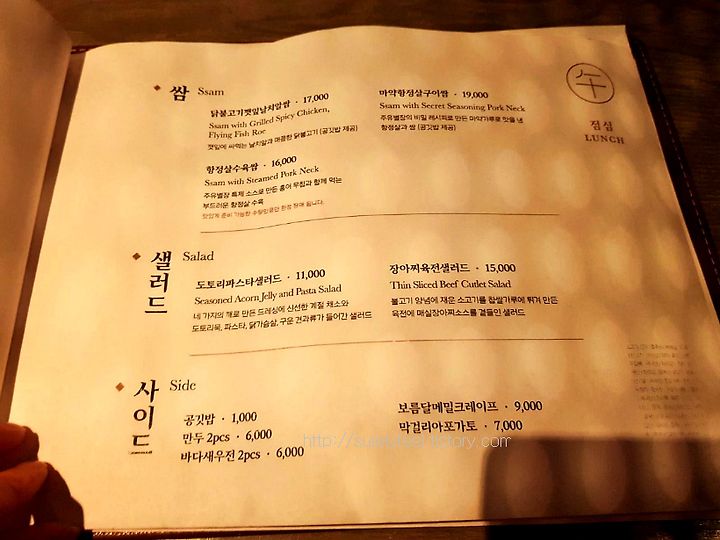 午
점심
LUNCH
쌈 Ssam
닭불고기깻잎날치알쌈 · 17,000
Ssam with Grilled Spicy Chicken,
Flying Fish Roe
깻잎에 싸먹는 날치알과 매콤한 닭불고기 (공깃밥 제공)
마약항정살구이쌈 · 19,000
Ssam with Secret Seasoning Pork Neck
주유별장의 비밀 레시피로 만든 마약가루로 맛을 낸
항정살과 쌈 (공깃밥 제공)
항정살수육쌈 · 16,000
Ssam with Steamed Pork Neck
주유별장 특제 소스로 만든 홍어 무침과 함께 먹는
부드러운 항정살 수육
맛있게 준비 가능한 수량만큼만 한정 판매 됩니다.
샐러드 Salad
도토리파스타샐러드 · 11,000
Seasoned Acorn Jelly and Pasta Salad
네 가지의 깨로 만든 드레싱에 신선한 계절 채소와
도토리묵, 파스타, 닭가슴살, 구운 견과류가 들어간 샐러드
장아찌육전샐러드 · 15,000
Thin Sliced Beef Cutlet Salad
불고기 양념에 재운 소고기를 찹쌀가루에 튀겨 만든
육전에 매실장아찌소스를 곁들인 샐러드
사이드 Side
공깃밥 · 1,000
만두 2pcs · 6,000
바다새우전 2pcs · 6,000
보름달메밀크레이프 · 9,000
막걸리아포가토 · 7,000